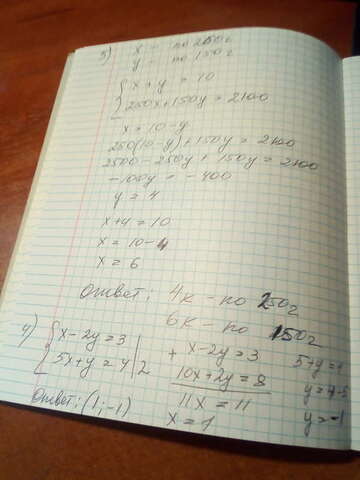 3) x - по 250г
y - по 150г
x + y = 10
250x + 150y = 2100
x = 10 - y
250(10 - y) + 150y = 2100
2500 - 250y + 150y = 2100
-100y = -400
y = 4
x + 4 = 10
x = 10 - 4
x = 6
Ответ: 4к - по 250г
6к - по 150г
4) x - 2y = 3
5x + y = 4 | 2
+ x - 2y = 3
10x + 2y = 8
11x = 11
x = 1
y = -1
Ответ: (1; -1)